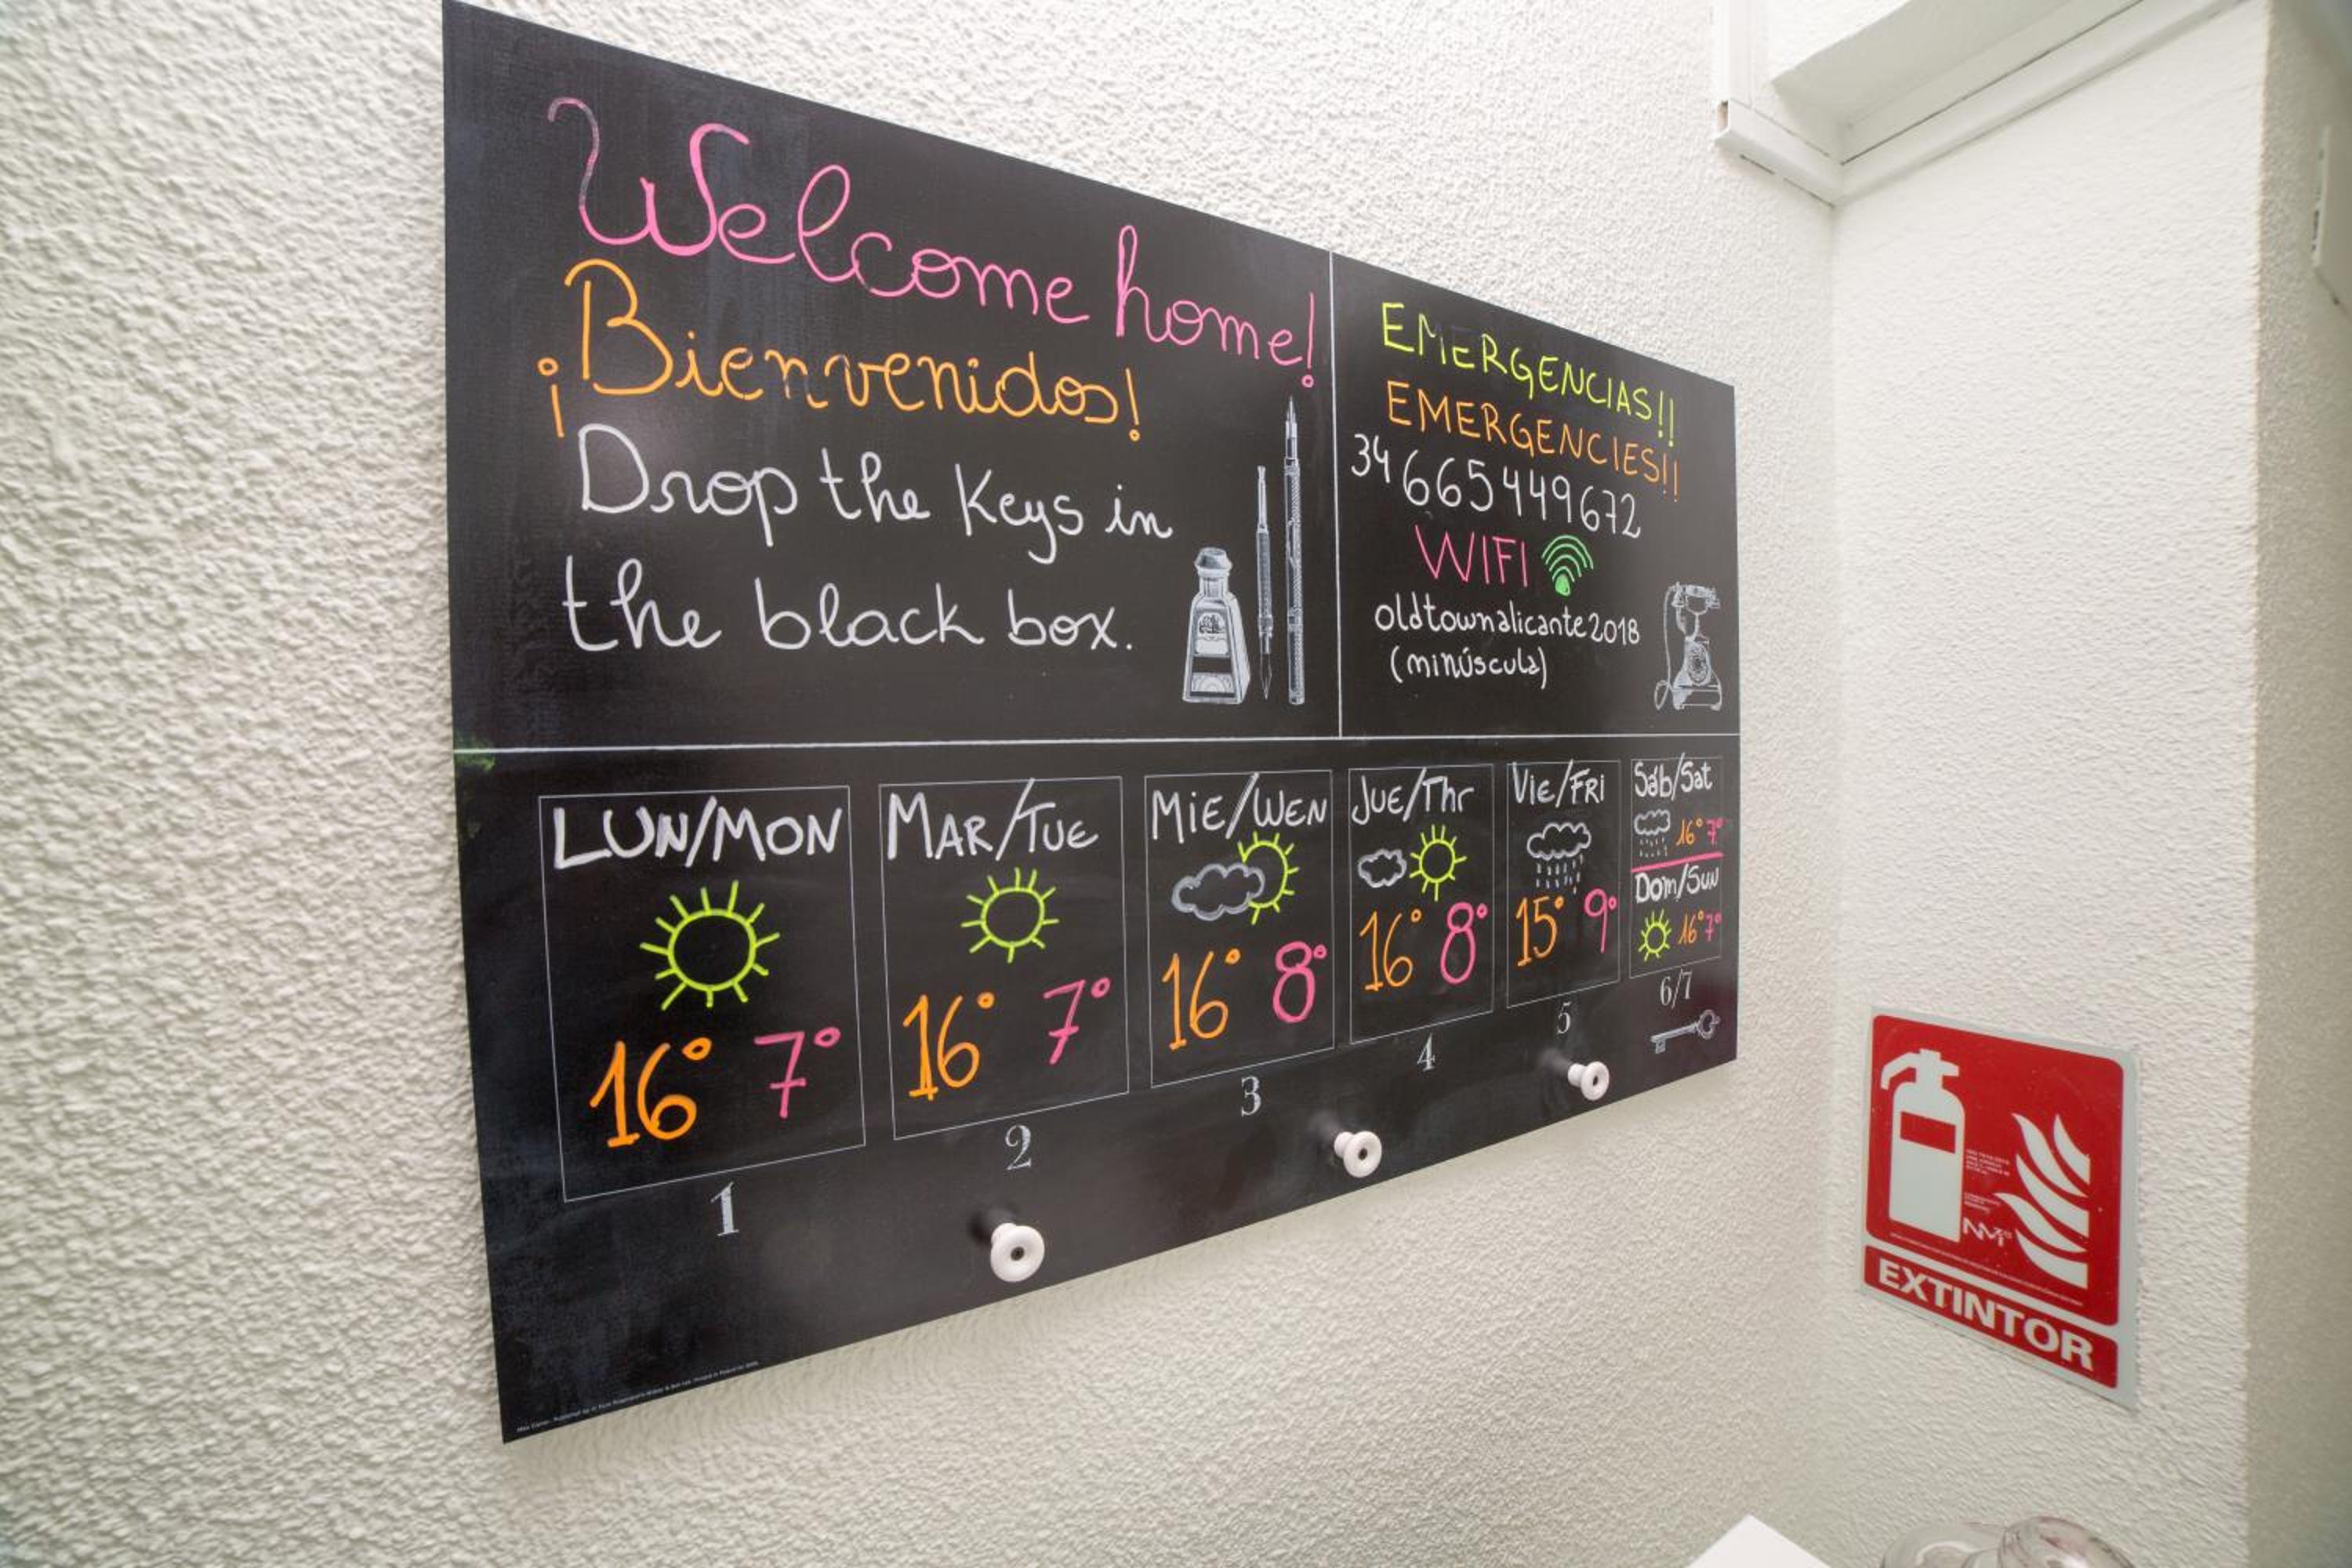 Welcome home!
¡Bienvenidos!
Drop the Keys in
the black box.
EMERGENCIAS!!
EMERGENCIES!!
34 665449672
WIFI
oldtownalicante2018
(minúscula)
LUN/MON
16° 7°
1
MAR/TUE
16° 7°
2
MiE/WEN
16° 8°
3
JUE/Thr
16° 8°
4
ViE/FRi
15° 9°
5
Sáb/Sat
16° 7°
Dom/Sun
16° 7°
6/7
EXTINTOR